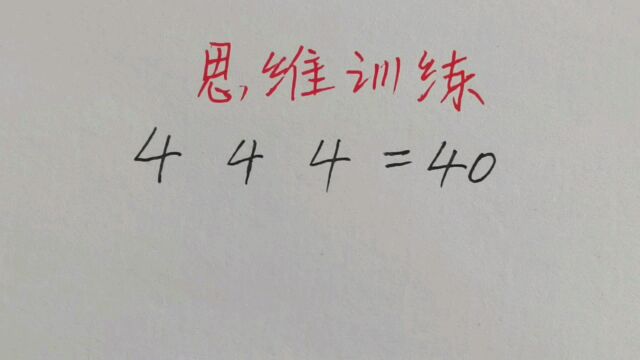 思维训练
4 4 4 = 40